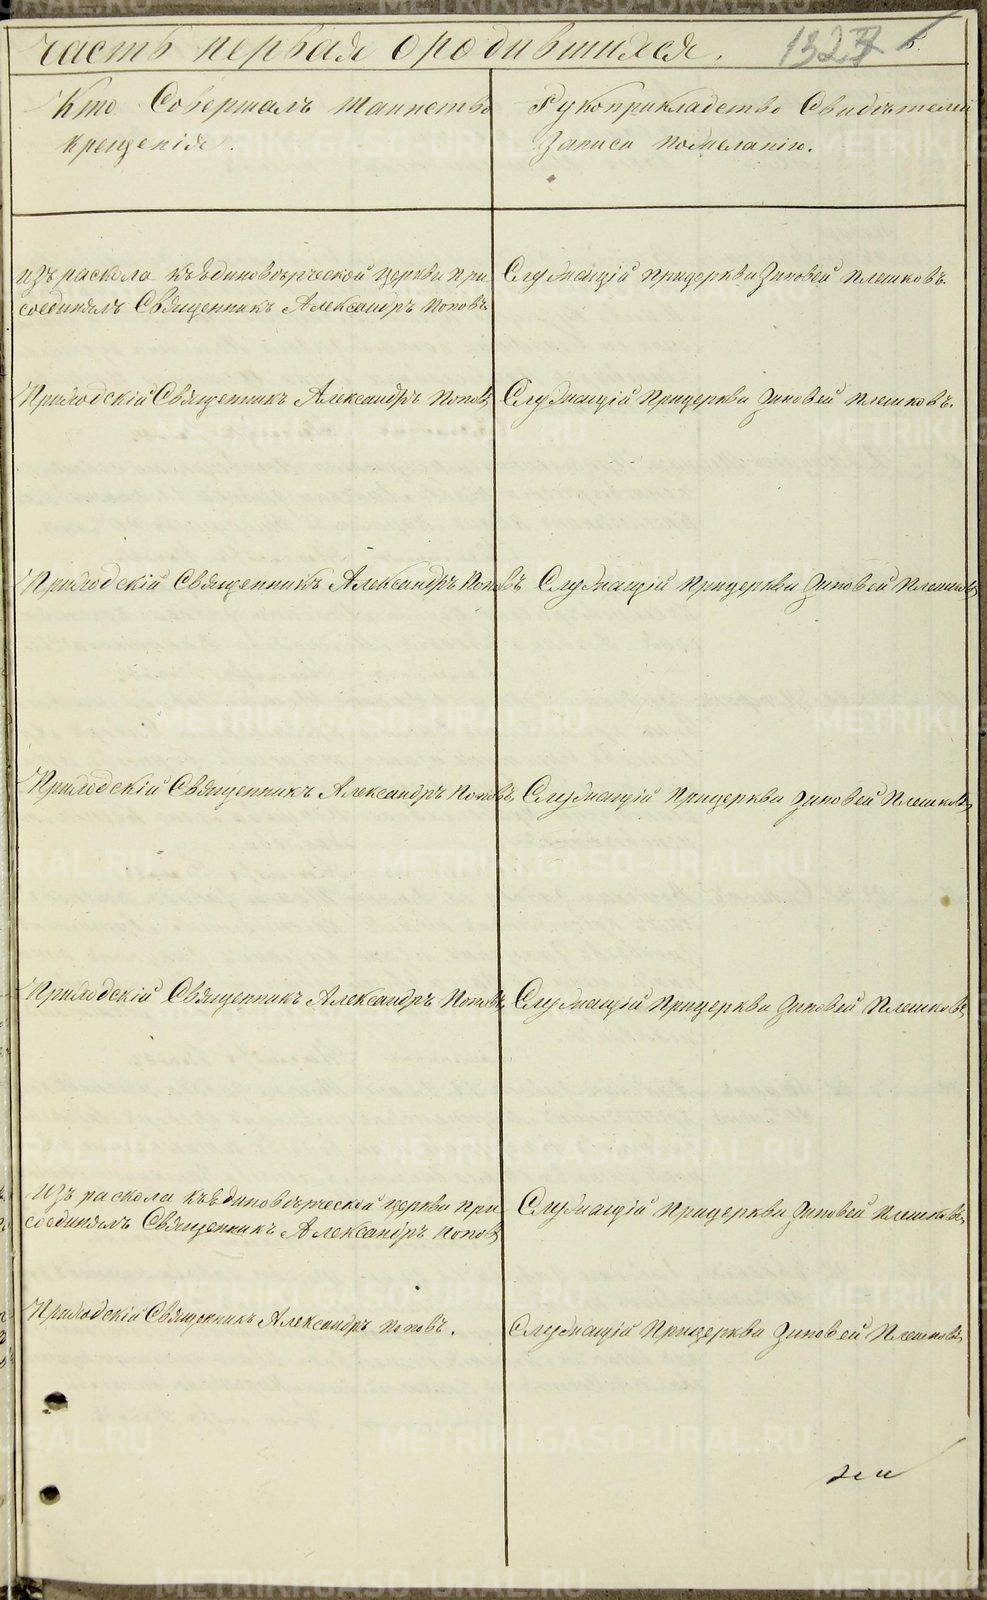 часть первая о родившихся.
Кто Совершалъ таинство
крещенія.
Рукоприкладство Свидѣтелей
Записи пожеланію.
изъ раскола къ Единовѣрческой церкви при
соединялъ Священникъ Александръ Поповъ
Служащій прицеркви Зиновей Плешковъ.
Приходскій Священникъ Александръ Поповъ
Служащій прицеркви Зиновей Плешковъ.
Приходскій Священникъ Александръ Поповъ
Служащій прицеркви Зиновей Плешковъ
Приходскій Священникъ Александръ Поповъ
Служащій прицеркви Зиновей Плешковъ
Приходскій Священникъ Александръ Поповъ
Служащій прицеркви Зиновей Плешковъ
изъ раскола къ Единовѣрческой церкви при
соединялъ Священникъ Александръ Поповъ
Служащій прицеркви Зиновей Плешковъ
Приходскій Священникъ Александръ Поповъ.
Служащій прицеркви Зиновей Плешковъ
METRIKI.GASO-URAL.RU